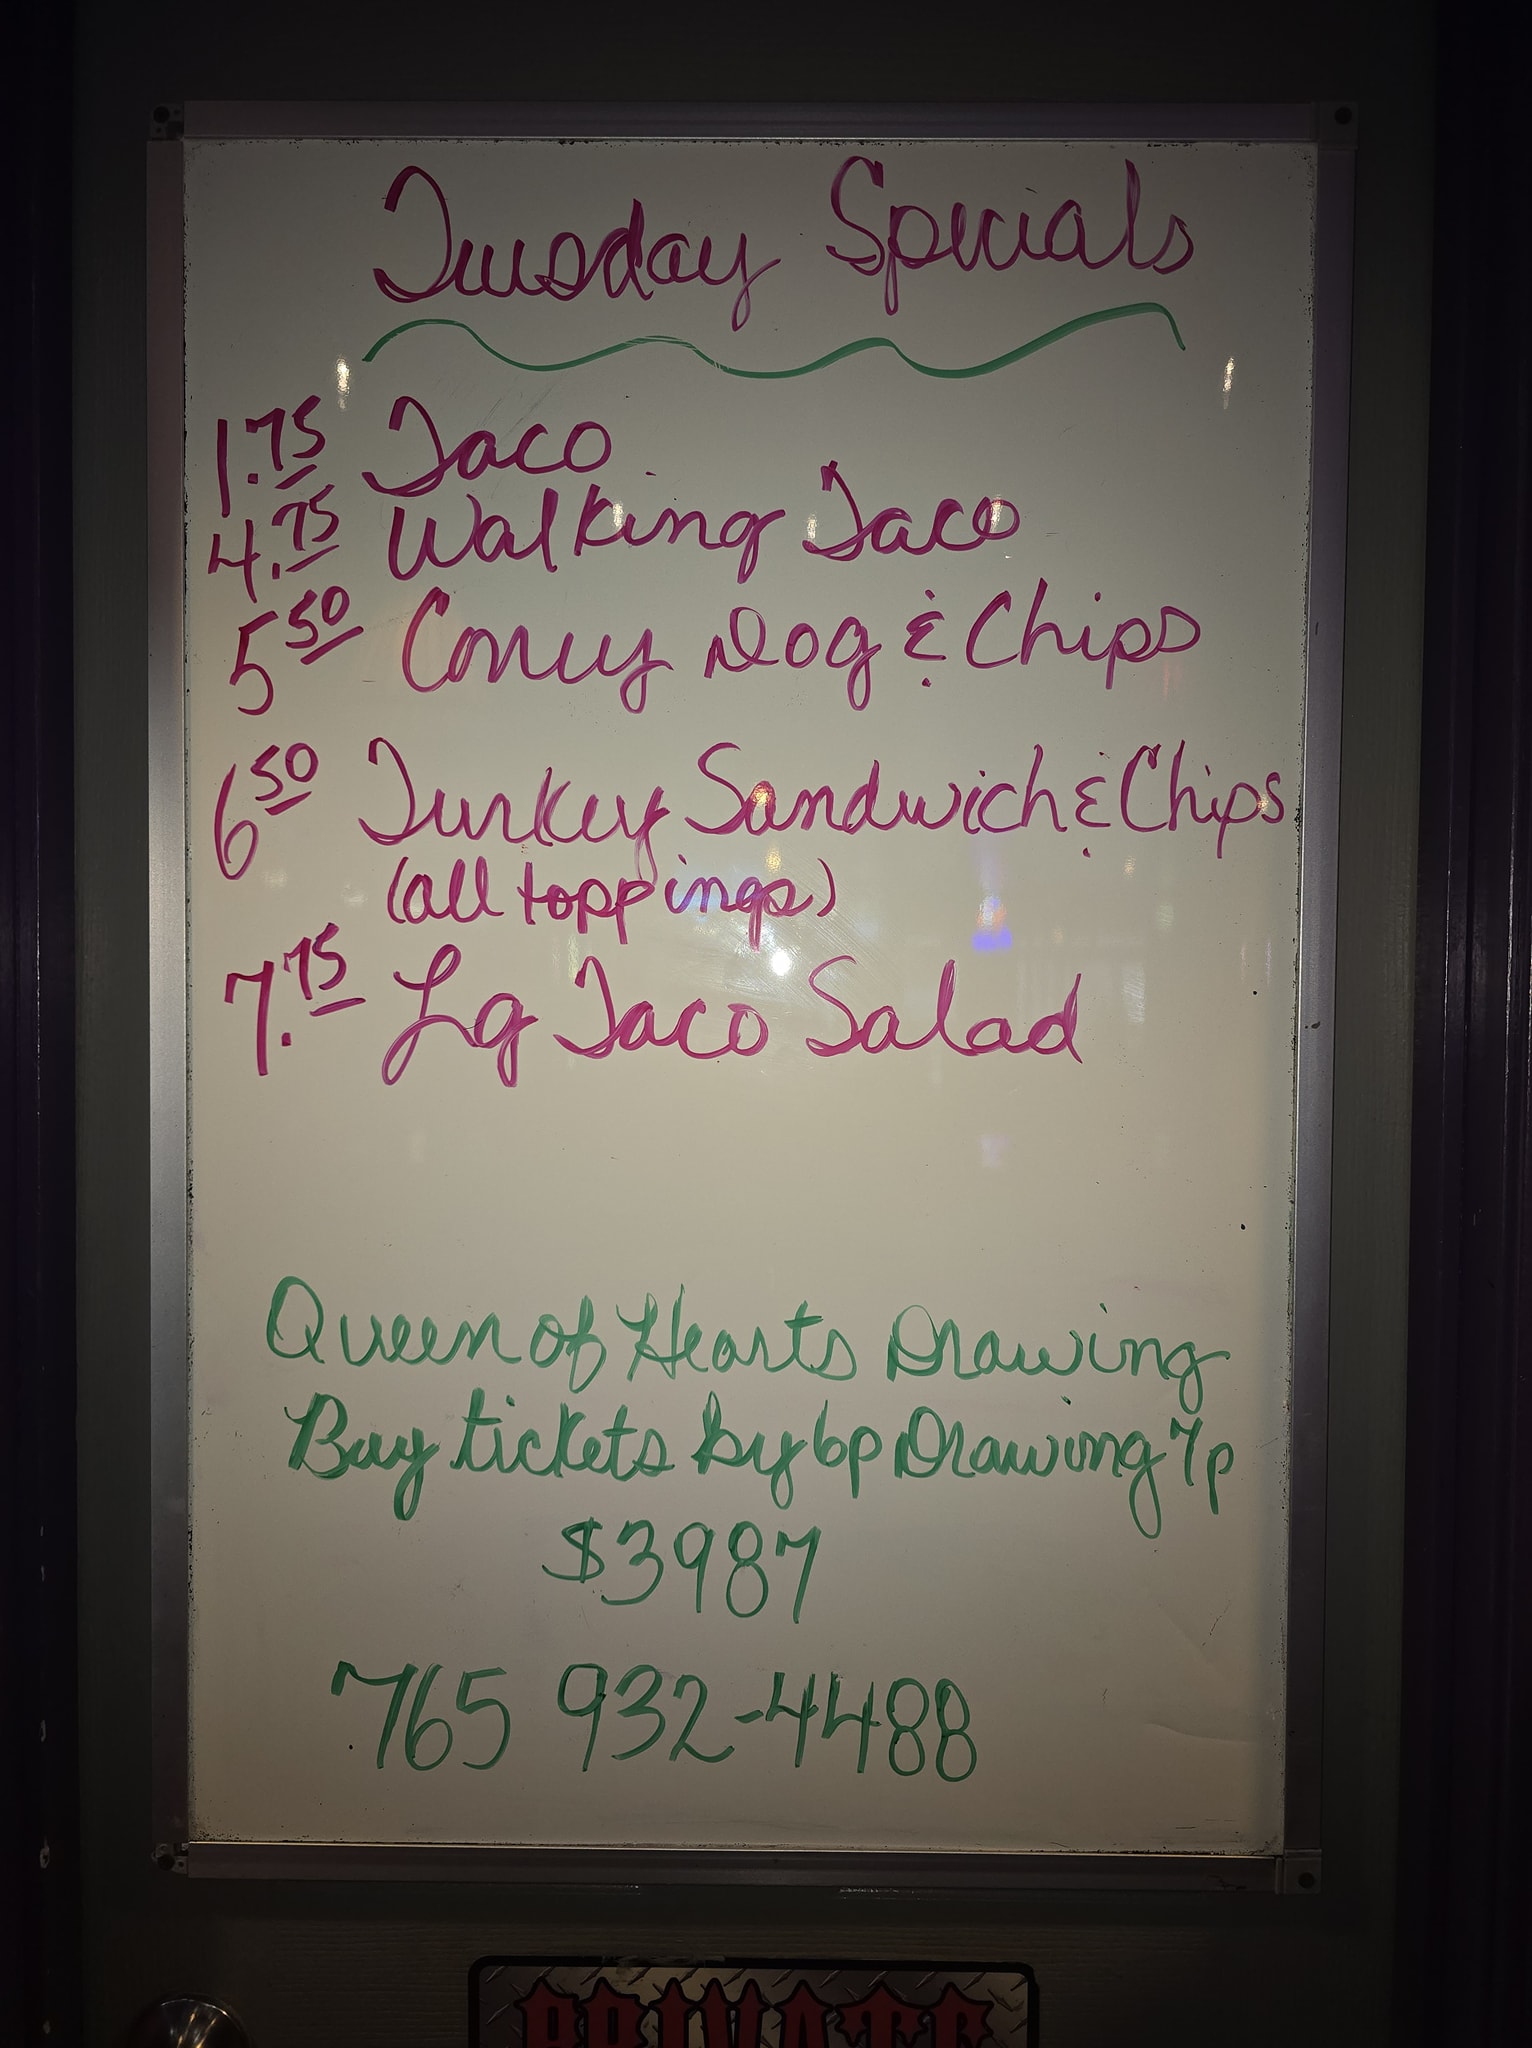 Tuesday Specials
1.75 Taco
4.75 Walking Taco
5 50 Coney Dog & Chips
6 50 Turkey Sandwich & Chips
(all toppings)
7.75 Lg Taco Salad
Queen of Hearts Drawing
Buy tickets by 6p Drawing 7p
$3987
765 932-4488
PRIVATE